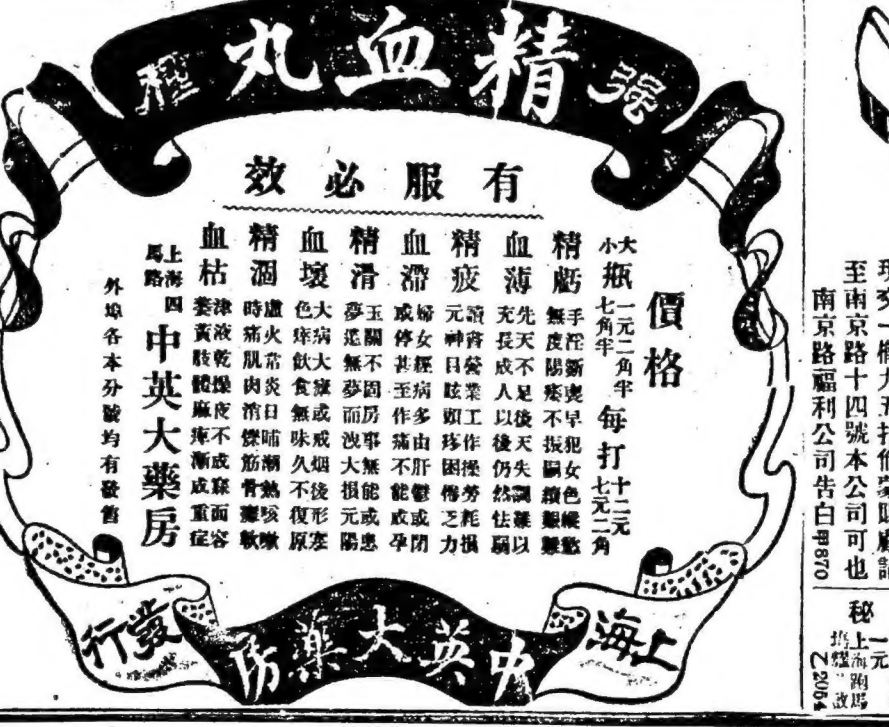 强種
精血丸
有服必效
價格
大瓶一元二角半每打十二元
小瓶七角半每打七元二角
精虧
手淫斲喪早犯女色縱慾
無度陽痿不振嗣續艱難
血薄
先天不足後天失調難以
充長成人以後仍然怯弱
精疲
讀書營業工作操勞耗損
元神目眩頭疼困倦乏力
血滯
婦女經病多由肝鬱或閉
或停甚至作痛不能成孕
精滑
玉關不固房事無能或患
夢遺無夢而洩大損元陽
血壞
大病大瘧或戒烟後形
色痒飲食無味久不復原
精涸
虛火常炎日晡潮熱咳嗽
時痛肌肉消爍筋骨痠軟
血枯
津液乾燥夜不成寐面容
萎黃肢體麻痺漸成重症
上海四馬路
中英大藥房
外埠各本分號均有發售
上海
中英大藥房
發行
至南京路十四號本公司可也
南京路福利公司告白
甲870
秘
一元
上海跑馬
乙2064